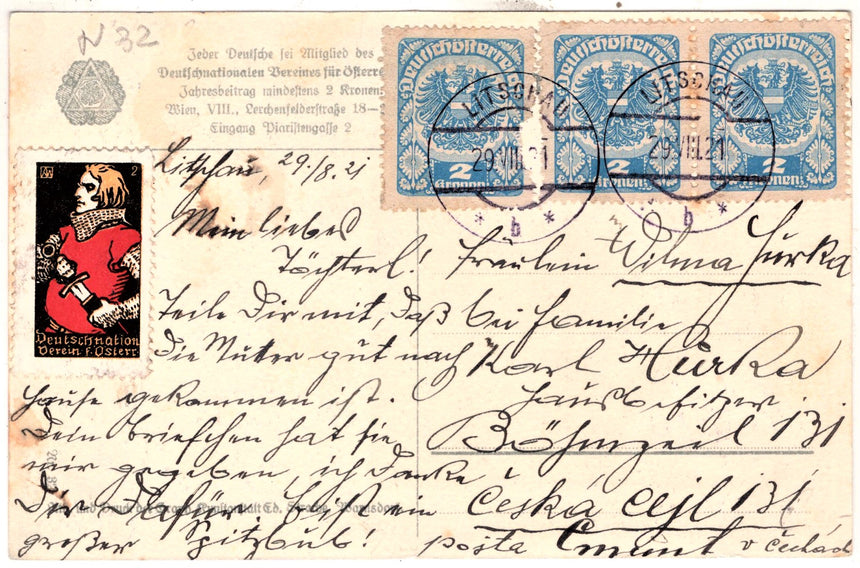 N 32
Jeder Deutsche sei Mitglied des
Deutschnationalen Vereines für Österr
Jahresbeitrag mindestens 2 Kronen
Wien, VIII., Lerchenfelderstraße 18-2
Eingang Piaristengasse 2
Deutschösterreich
2
Kronen
Deutschösterreich
2
Kronen
Deutschösterreich
2
Kronen
LITSCHAU
29.VIII.21
* b *
LITSCHAU
29.VIII.21
* b *
2
Deutschnation
Verein f. Österr
Litschau, 29./8. 21
Mein liebes
Töchterl!
Teile Dir mit, daß
die Mutter gut nach
Hause gekommen ist.
Dein Briefchen hat sie
mir gegeben, ich danke
Dir dafür, bist ein
großer Spitzbub!
Fräulein Wilma Hurka
bei Familie
Karl Hurka
Hausbesitzer
Böhmzeil 131
Česká Cejl 131
pošta Cmunt v Čechách
und Druck der Graph. Kunstanstalt Ed. Strache, Warnsdorf